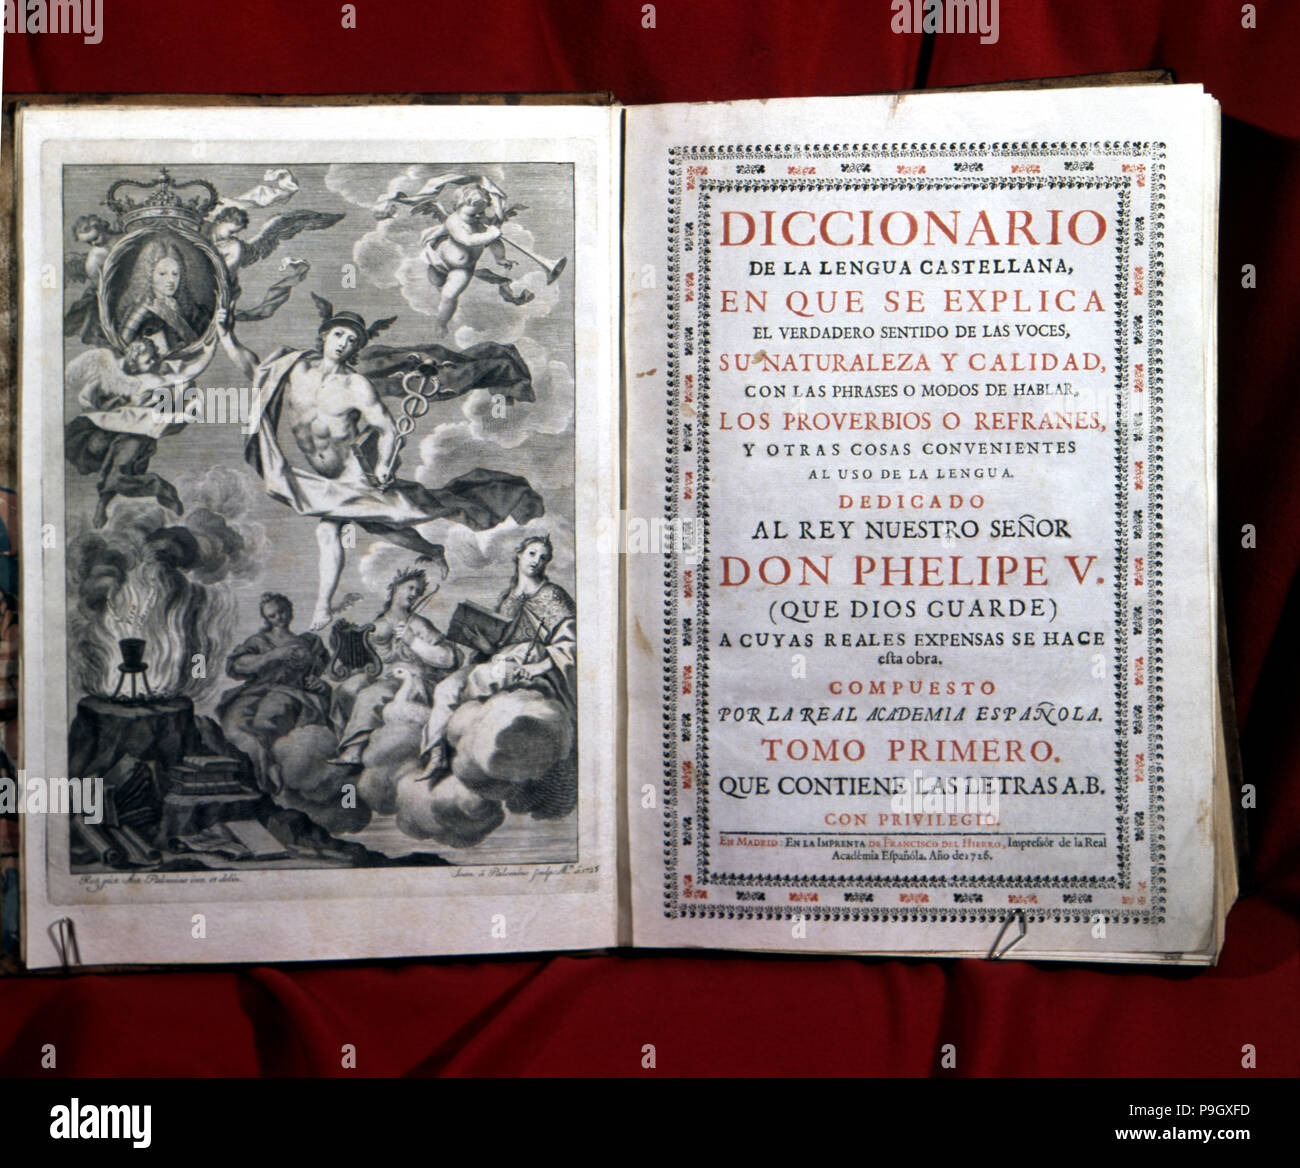 Reg. pict. Ant. Palomino inv. et delin.
Ioan. à Palomino sculp. M.ti
DICCIONARIO
DE LA LENGUA CASTELLANA,
EN QUE SE EXPLICA
EL VERDADERO SENTIDO DE LAS VOCES,
SU NATURALEZA Y CALIDAD,
CON LAS PHRASES O MODOS DE HABLAR,
LOS PROVERBIOS O REFRANES,
Y OTRAS COSAS CONVENIENTES
AL USO DE LA LENGUA.
DEDICADO
AL REY NUESTRO SEÑOR
DON PHELIPE V.
(QUE DIOS GUARDE)
A CUYAS REALES EXPENSAS SE HACE
esta obra.
COMPUESTO
POR LA REAL ACADEMIA ESPAÑOLA.
TOMO PRIMERO.
QUE CONTIENE LAS LETRAS A.B.
CON PRIVILEGIO.
EN MADRID: EN LA IMPRENTA DE FRANCISCO DEL HIERRO, Impressór de la Real
Académia Españóla. Año de 1726.
alamy
Image ID: P9GXFD
www.alamy.com